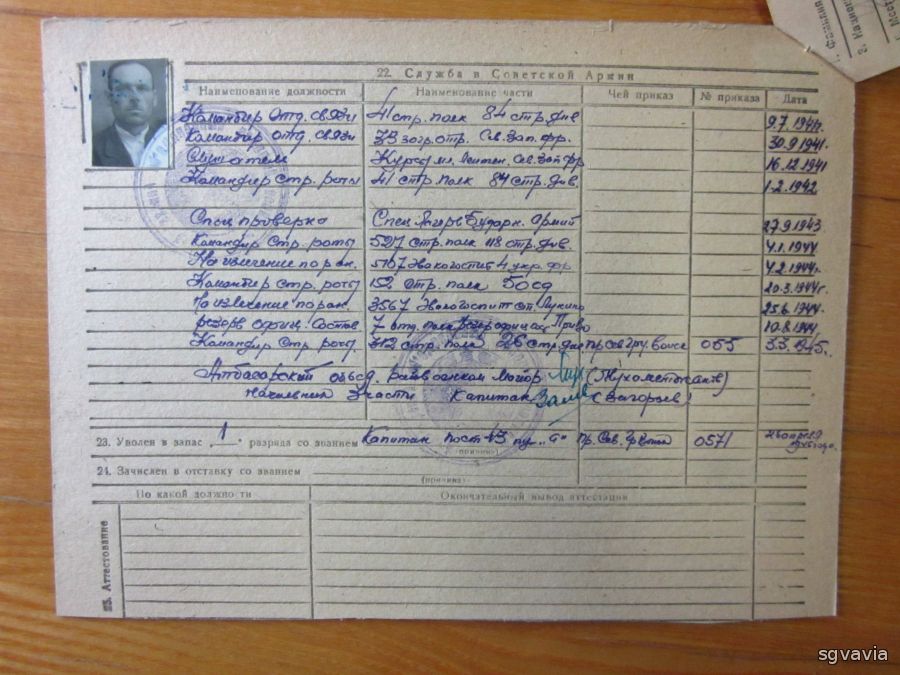 22. Служба в Советской Армии
Наименование должности Наименование части Чей приказ № приказа Дата
Командир Отд. связи 41 стр. полк 84 стр. див. 9.7.1941г.
Командир отд. связи 73 отр. Сев. Зап. фр. 30.9.1941.
Слушатель Курсы мл. лейтен. Сев. Зап. фр 16.12.1941
Командир стр. роты 41 стр. полк 84 стр. див. 1.2.1942
Спец проверка Спец Лагерь Армий 27.9.1943.
Командир Стр. роты 527 стр. полк 118 стр. див. 4.1.1944.
На излечение по ран. 5767 Эвакогоспит 4 укр. фр 4.2.1944г.
Командир стр. роты 2. Стр. полк 50 сд 20.3.1944г.
На излечение по ран. 3567 Эвакогоспит ст. Лукино 25.6.1944.
резерв офиц. Состав 7 отд. полк резерв 10.8.1944.
Командир Стр. роты. 312 стр. полк 26 стр. див Пр. Сев. Гру. Войск 055 3.3.1945г.
Атбасарский объед. райвоенком Майор (Мухометжанов)
Начальник 3 части Капитан (Загорьев)
23. Уволен в запас 1 разряда со званием Капитан по ст 43 пу. „а" Пр. Сев. Гр Войск 0571
(приказ)
24. Зачислен в отставку со званием
(приказ)
По какой должности Окончательный вывод аттестации
25. Аттестование
sgvavia